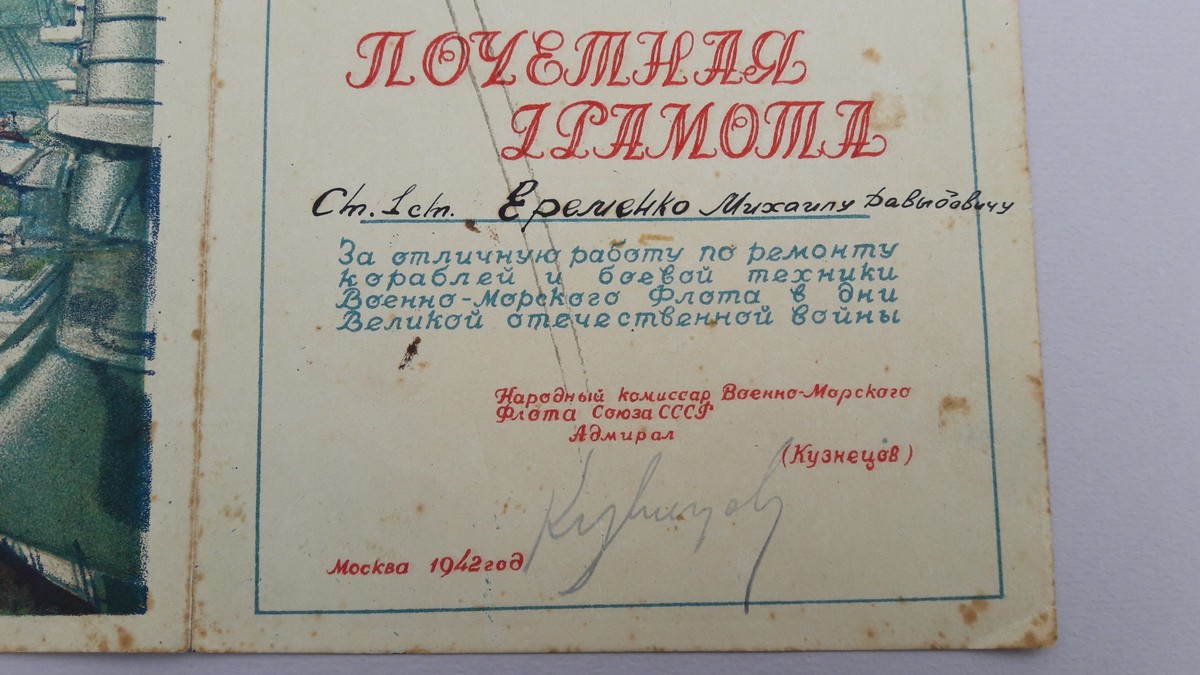 ПОЧЕТНАЯ
ГРАМОТА
Ст. 1 ст. Еременко Михаилу Давыдовичу
За отличную работу по ремонту
кораблей и боевой техники
Военно-Морского Флота в дни
Великой отечественной войны
Народный комиссар Военно-Морского
Флота Союза СССР
Адмирал
(Кузнецов)
Кузнецов
Москва 1942 год